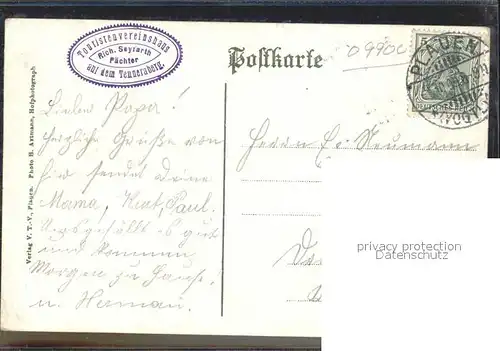 Touristenvereinshaus
Rich. Seyfarth
Pächter
auf dem Tennersberg.
Postkarte
09900
5
PLAUEN
(VOGTL.)
Lieber Papa!
herzliche Grüße von
hier sendet Deine
Mama, Kurt, Paul.
Uns gefällt es gut
und kommen
Morgen zu Hause.
u.
Herrn
Neumann
privacy protection
Datenschutz
Verlag V. T.-V., Plauen. Photo H. Axtmann, Hofphotograph